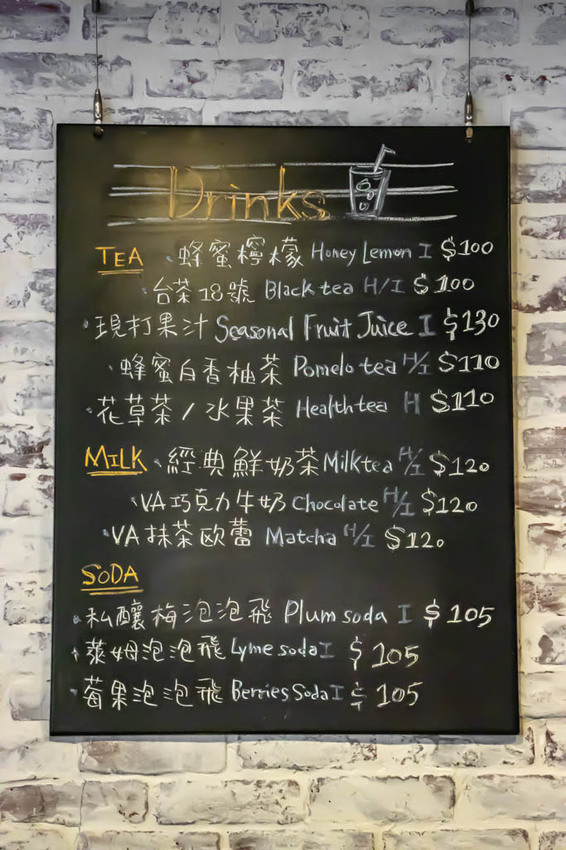 Drinks
TEA 蜂蜜檸檬 Honey Lemon I $100
台茶18號 Black tea H/I $100
現打果汁 Seasonal Fruit Juice I $130
蜂蜜白香柚茶 Pomelo tea H/I $110
花草茶/水果茶 Healthtea H $110
MILK 經典鮮奶茶 Milktea H/I $120
VA巧克力牛奶 Chocolate H/I $120
VA抹茶歐蕾 Matcha H/I $120
SODA
私釀梅泡泡飛 Plum soda I $105
萊姆泡泡飛 Lyme soda I $105
莓果泡泡飛 Berries Soda I $105